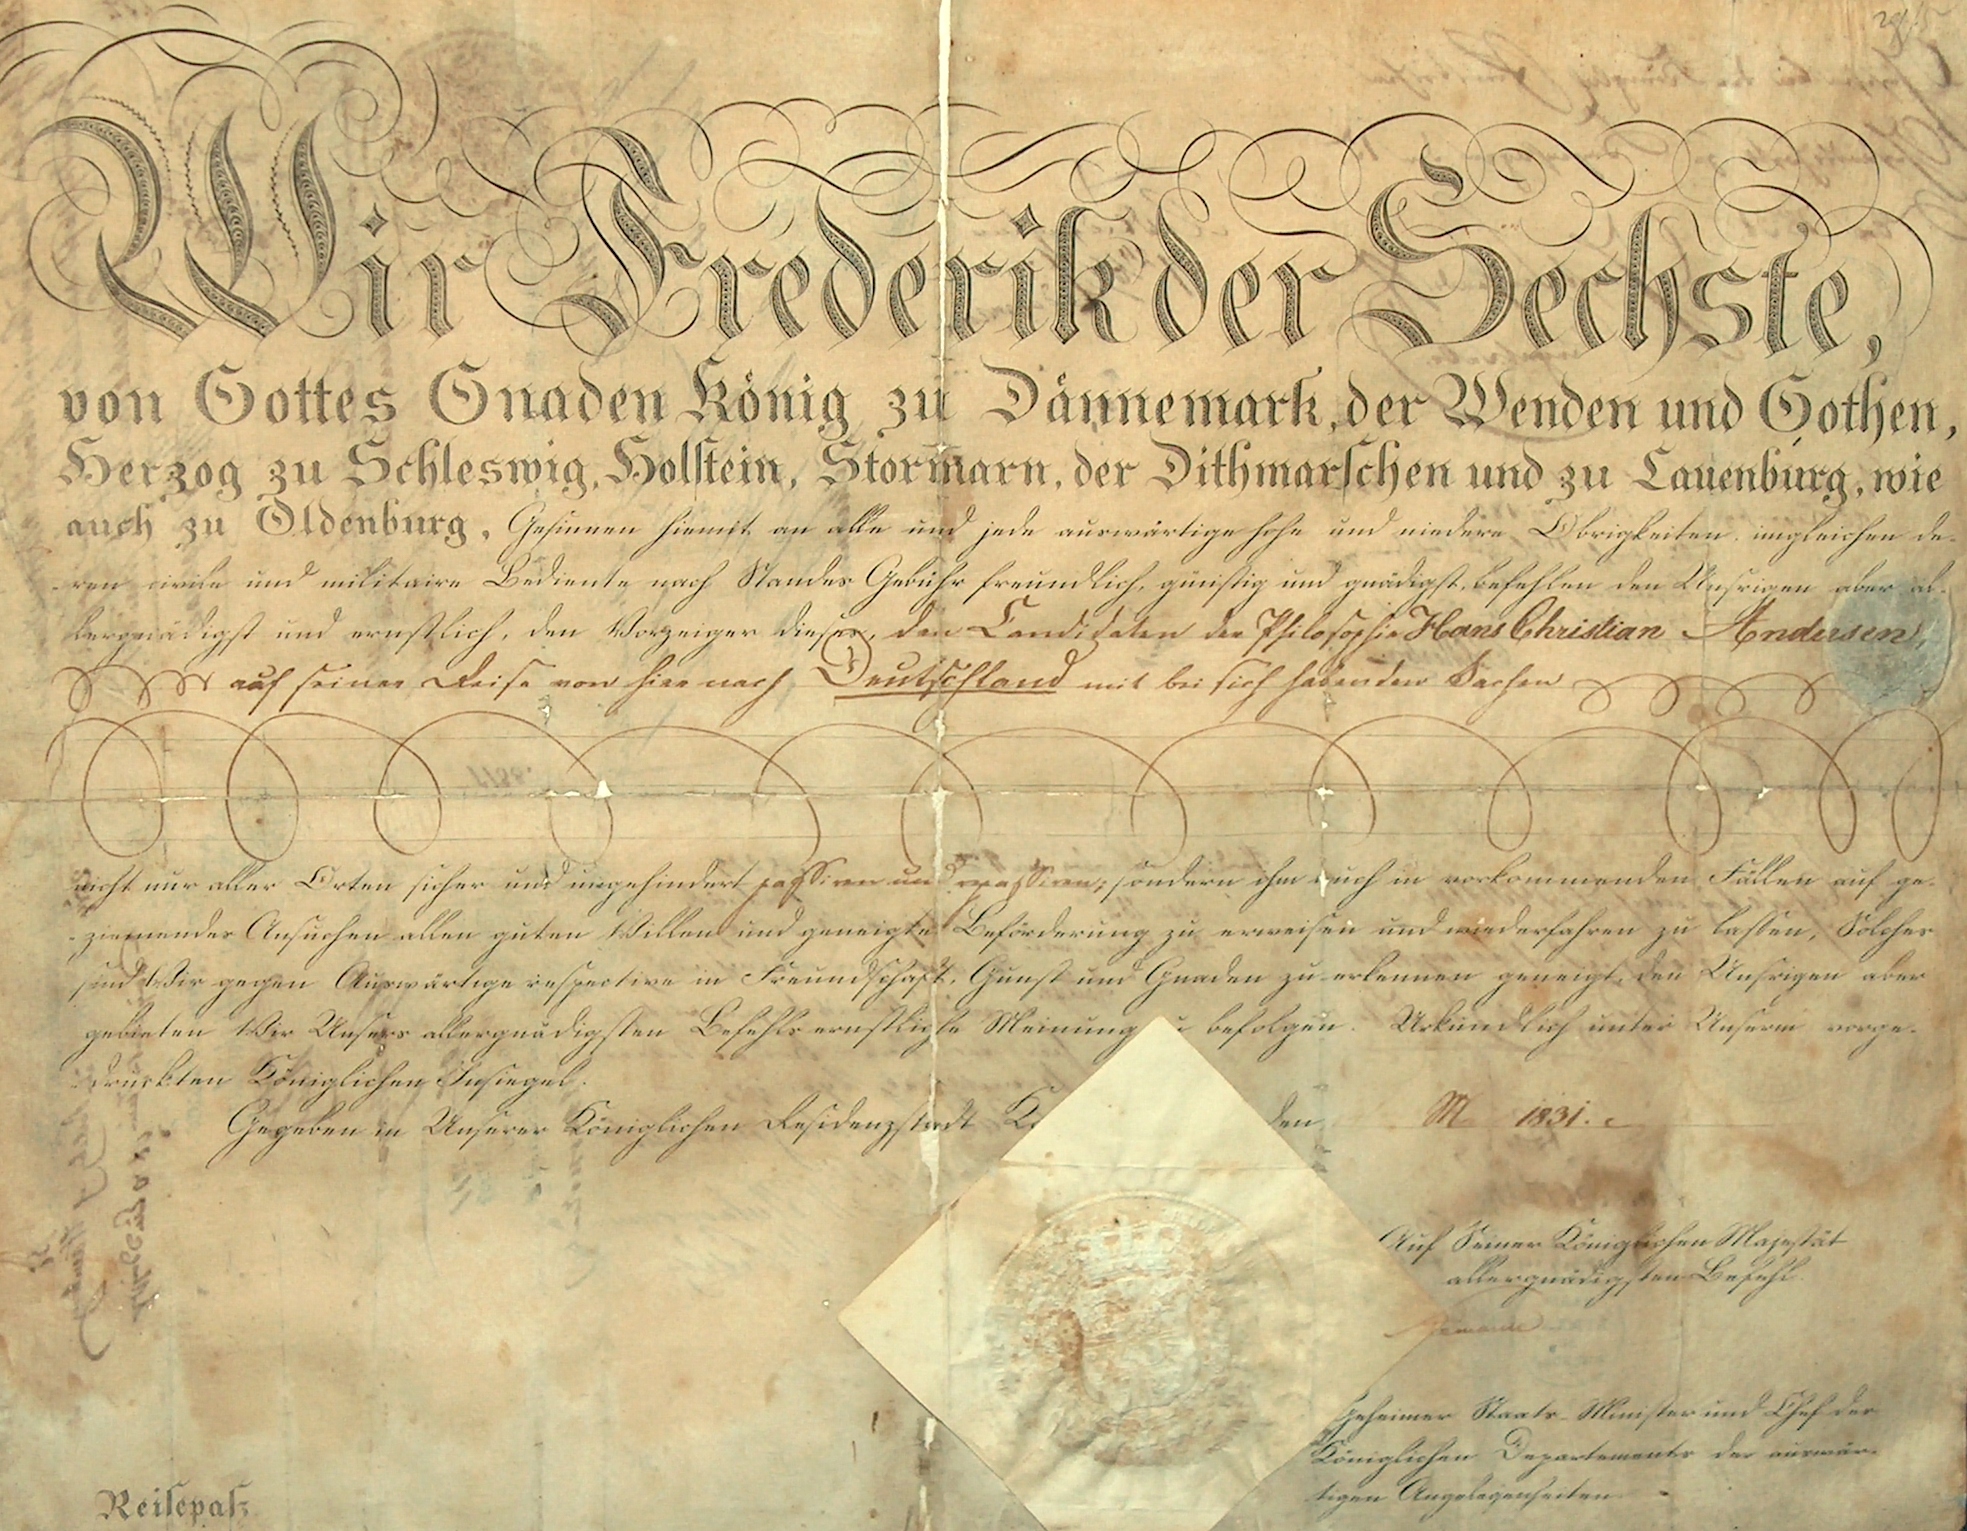 Wir Frederik der Sechste,
von Gottes Gnaden König zu Dännemark, der Wenden und Gothen,
Herzog zu Schleswig, Holstein, Stormarn, der Dithmarschen und zu Lauenburg, wie
auch zu Oldenburg, Gesinnen hiemit an alle und jede auswärtige hohe und niedere Obrigkeiten, imgleichen de-
ren civile und militaire Bediente nach Standes Gebühr freundlich, günstig und gnädigst, befehlen den Unsrigen aber al-
lergnädigst und ernstlich, den Vorzeiger dieses, den Candidaten der Philosophie Hans Christian Andersen,
auf seiner Reise von hier nach Deutschland mit bei sich habenden Sachen
nicht nur aller Orten sicher und ungehindert passiren und repassiren, sondern ihm auch in vorkommenden Fällen auf ge-
ziemendes Ansuchen allen guten Willen und geneigte Beförderung zu erweisen und wiederfahren zu lassen, Solches
sind Wir gegen Auswärtige respective in Freundschaft, Gunst und Gnaden zu erkennen geneigt, den Unsrigen aber
gebieten Wir Unsers allergnädigsten Befehls ernstliche Meinung zu befolgen. Urkundlich unter Unserm vorge-
druckten Königlichen Insiegel.
Gegeben in Unserer Königlichen Residenzstadt den 1831.
Auf Seiner Königlichen Majestät
allergnädigsten Befehl.
Geheimer Staats-Minister und Chef des
Königlichen Departements der auswär-
tigen Angelegenheiten
Reisepaß